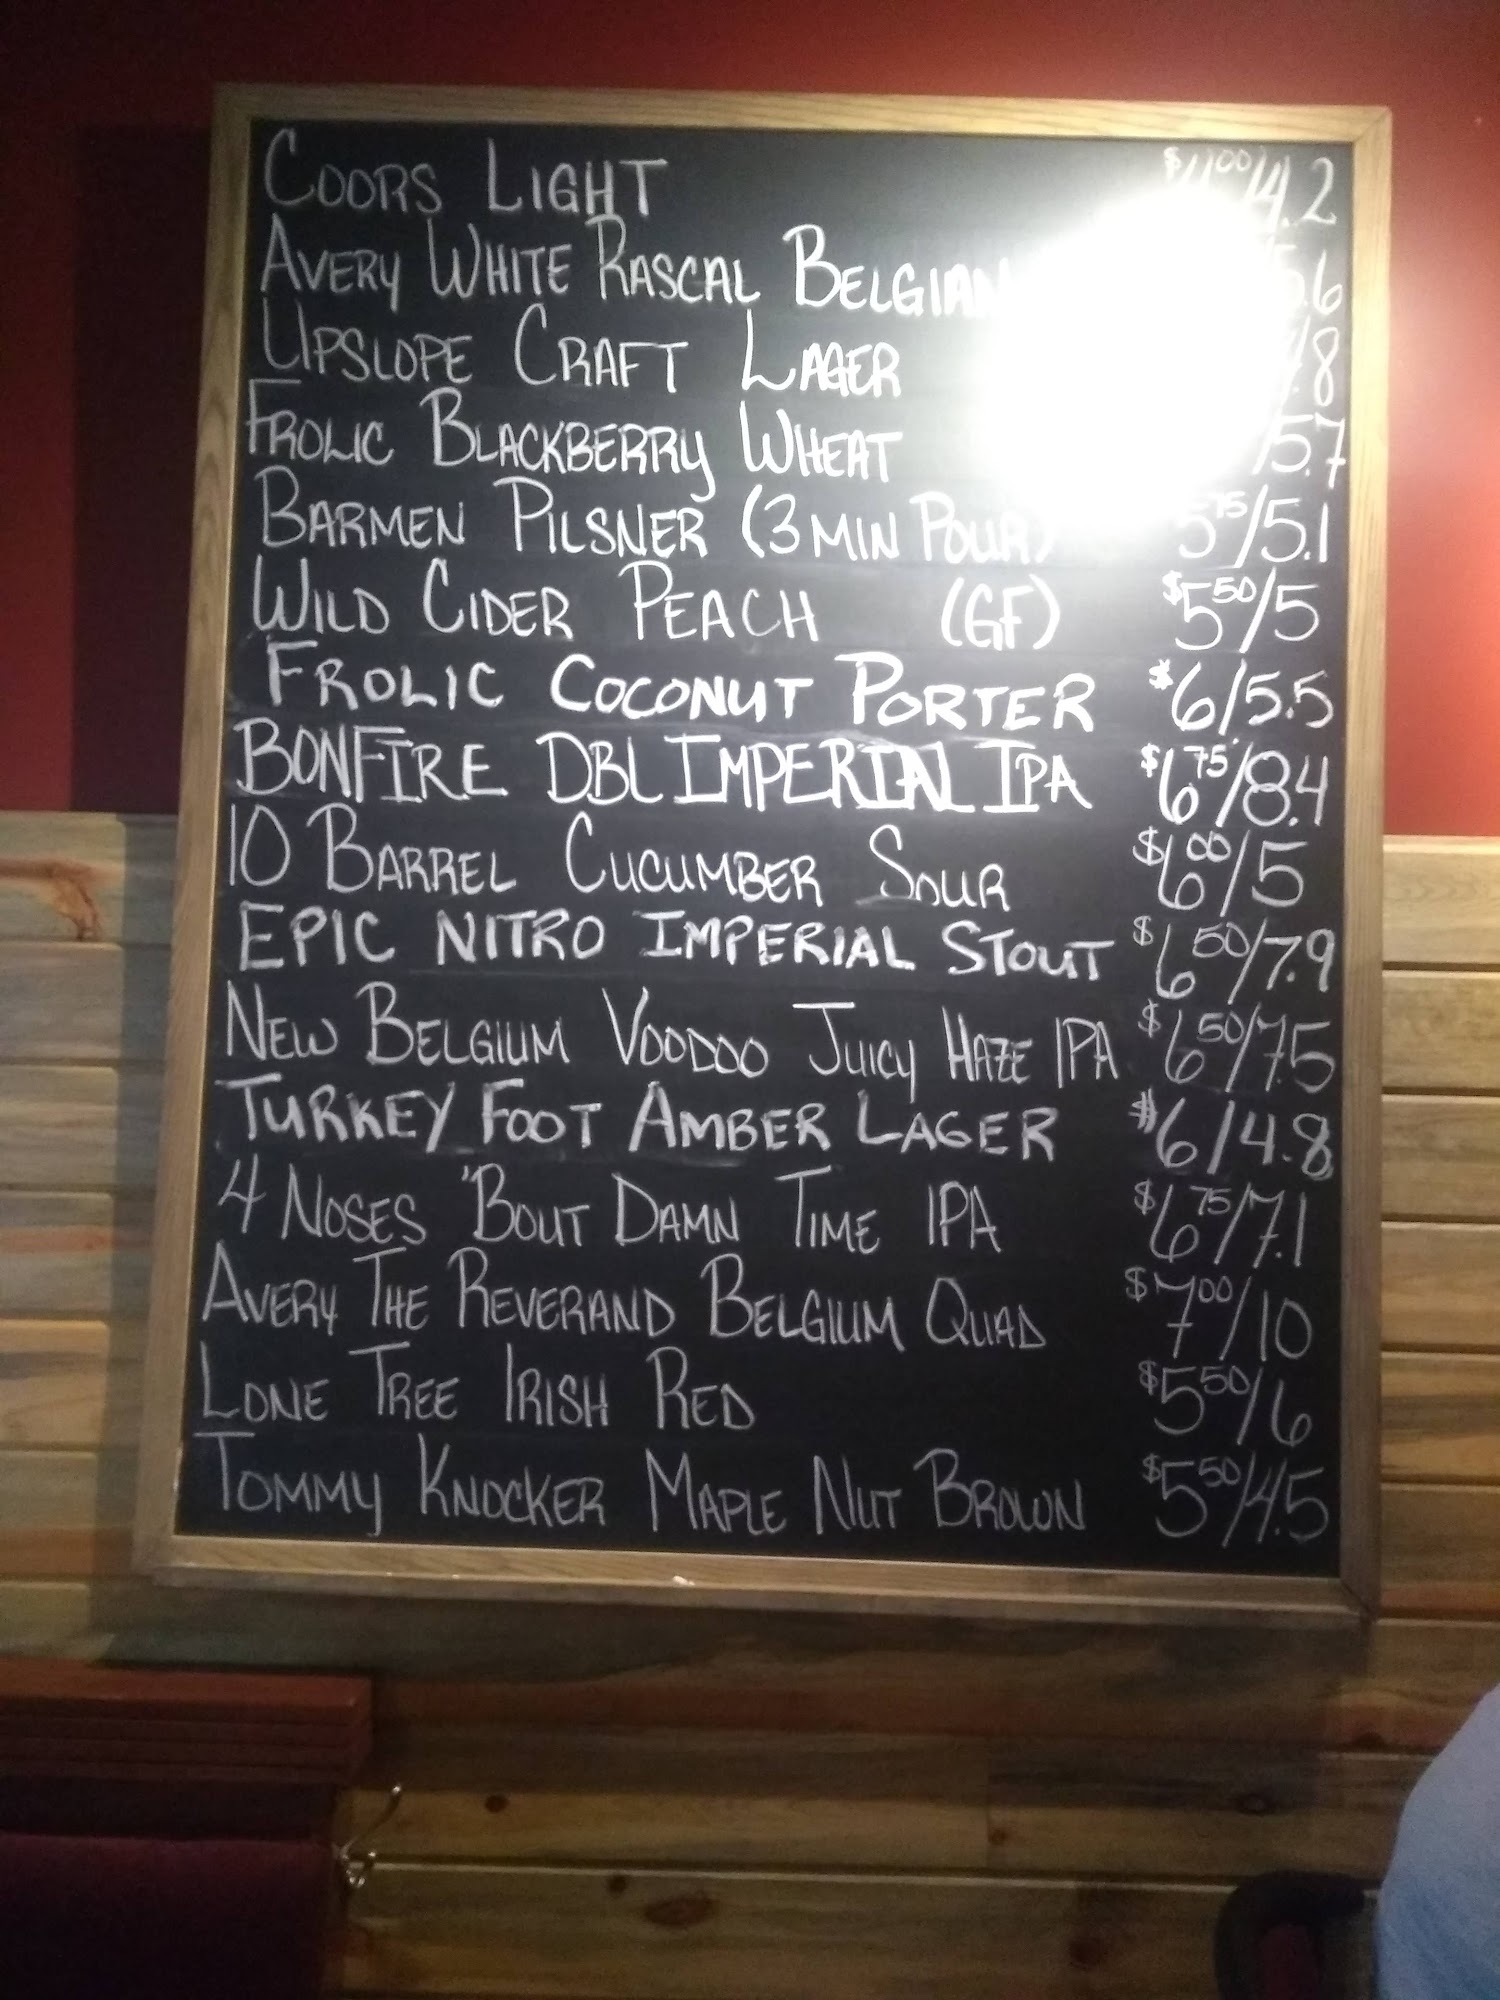 COORS LIGHT $4.00/4.2
AVERY WHITE RASCAL BELGIAN 5.6
UPSLOPE CRAFT LAGER
FROLIC BLACKBERRY WHEAT /5.7
BARMEN PILSNER (3 MIN POUR) 5.75/5.1
WILD CIDER PEACH (GF) $5.50/5
FROLIC COCONUT PORTER $6/5.5
BONFIRE DBL IMPERIAL IPA $6.75/8.4
10 BARREL CUCUMBER SOUR $6.00/5
EPIC NITRO IMPERIAL STOUT $6.50/7.9
NEW BELGIUM VOODOO JUICY HAZE IPA $6.50/7.5
TURKEY FOOT AMBER LAGER $6/4.8
4 NOSES 'BOUT DAMN TIME IPA $6.75/7.1
AVERY THE REVERAND BELGIUM QUAD $7.00/10
LONE TREE IRISH RED $5.50/6
TOMMY KNOCKER MAPLE NUT BROWN $5.50/4.5